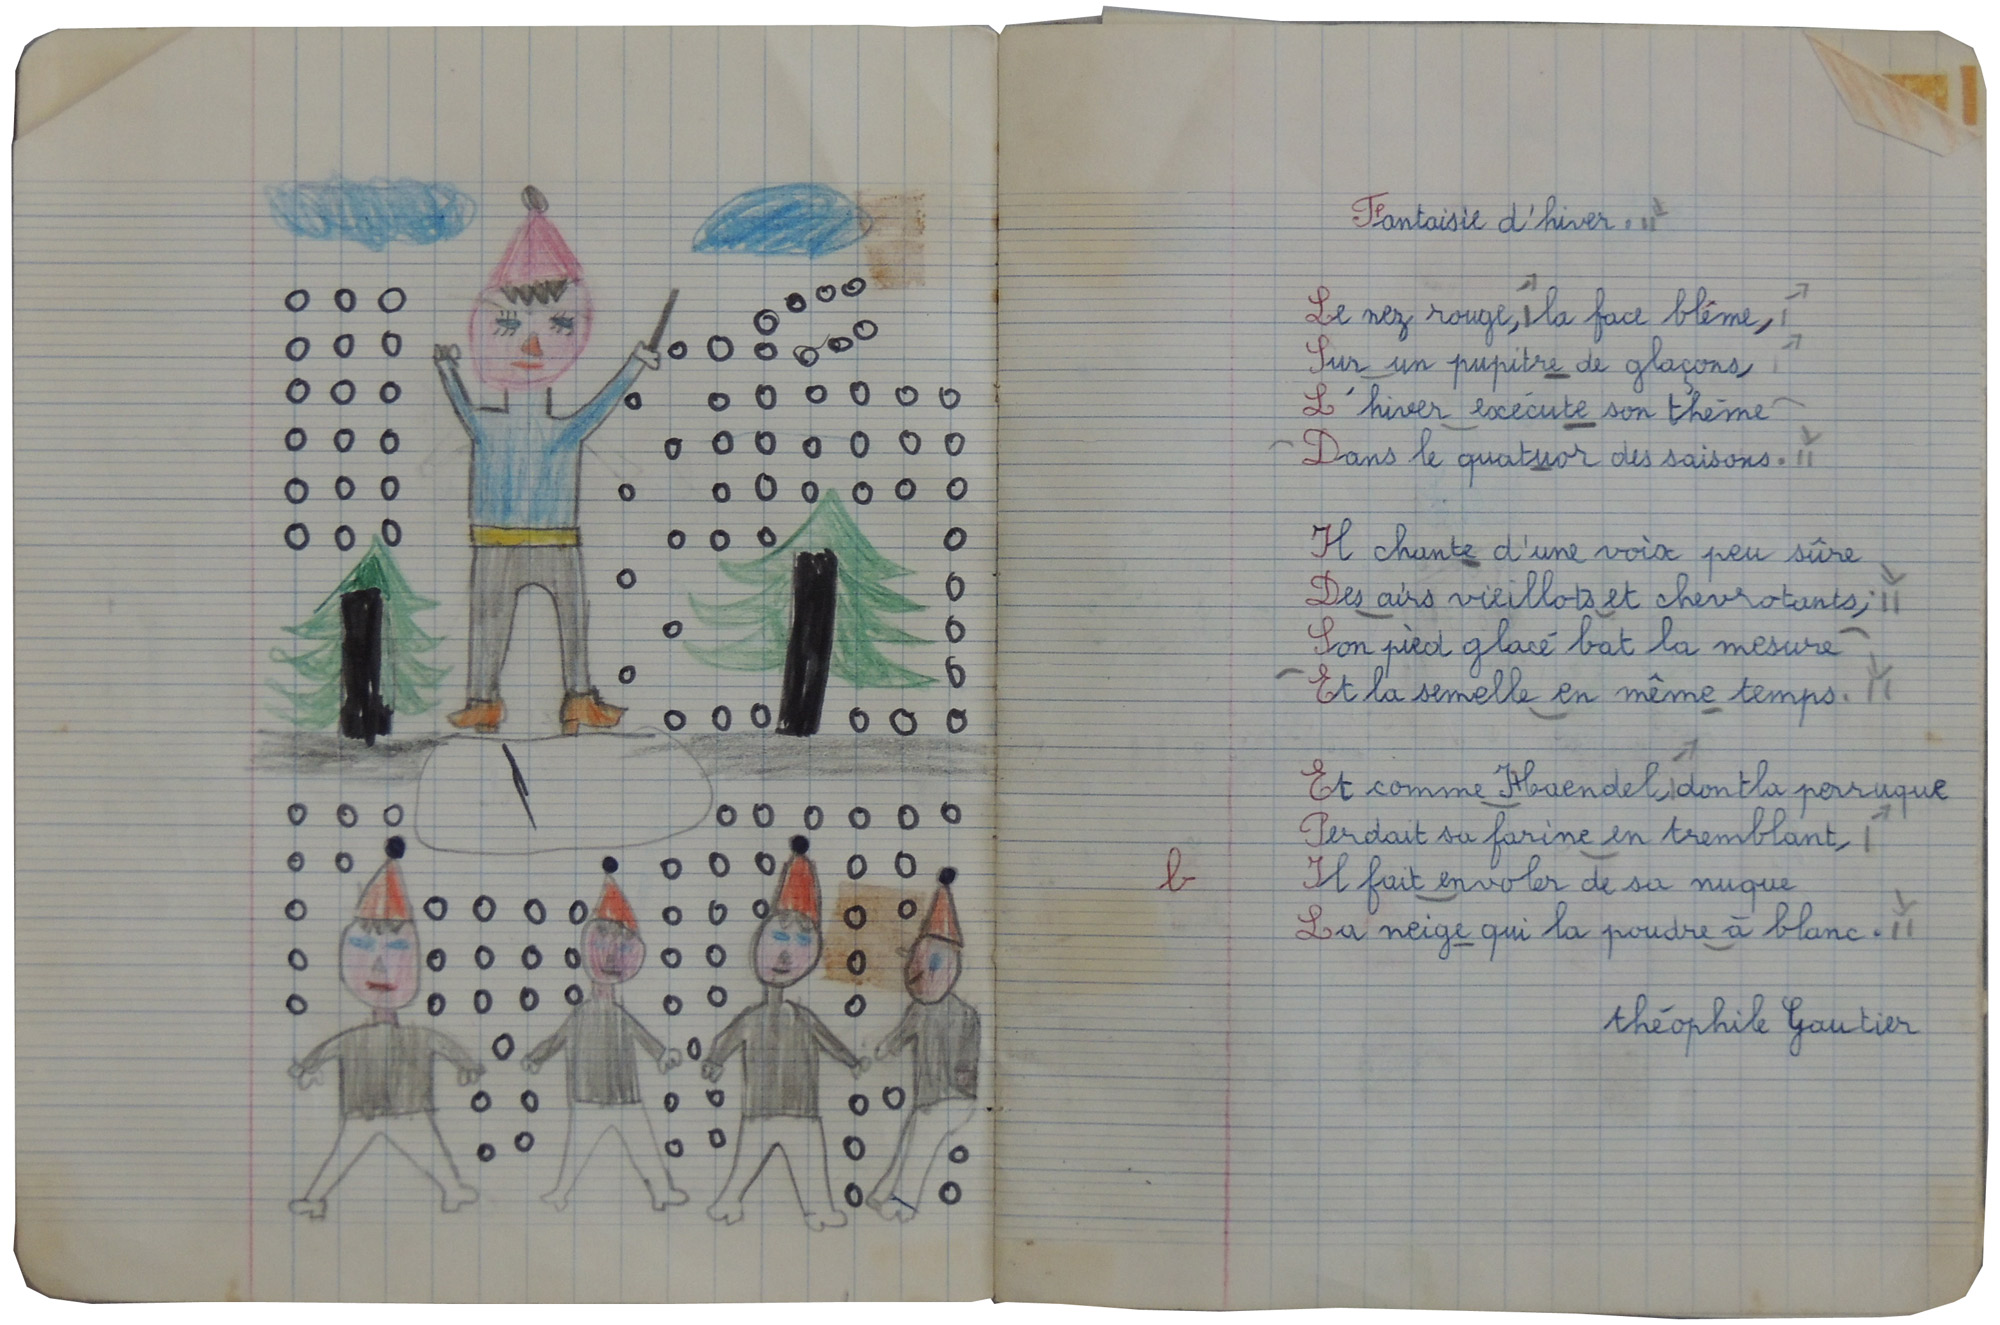 Fantaisie d'hiver.
Le nez rouge, la face blême,
Sur un pupitre de glaçons,
L'hiver exécute son thème
Dans le quatuor des saisons.
Il chante d'une voix peu sûre
Des airs vieillots et chevrotants;
Son pied glacé bat la mesure
Et la semelle en même temps.
Et comme Haendel, dont la perruque
Perdait sa farine en tremblant,
b
Il fait envoler de sa nuque
La neige qui la poudre à blanc.
théophile Gautier